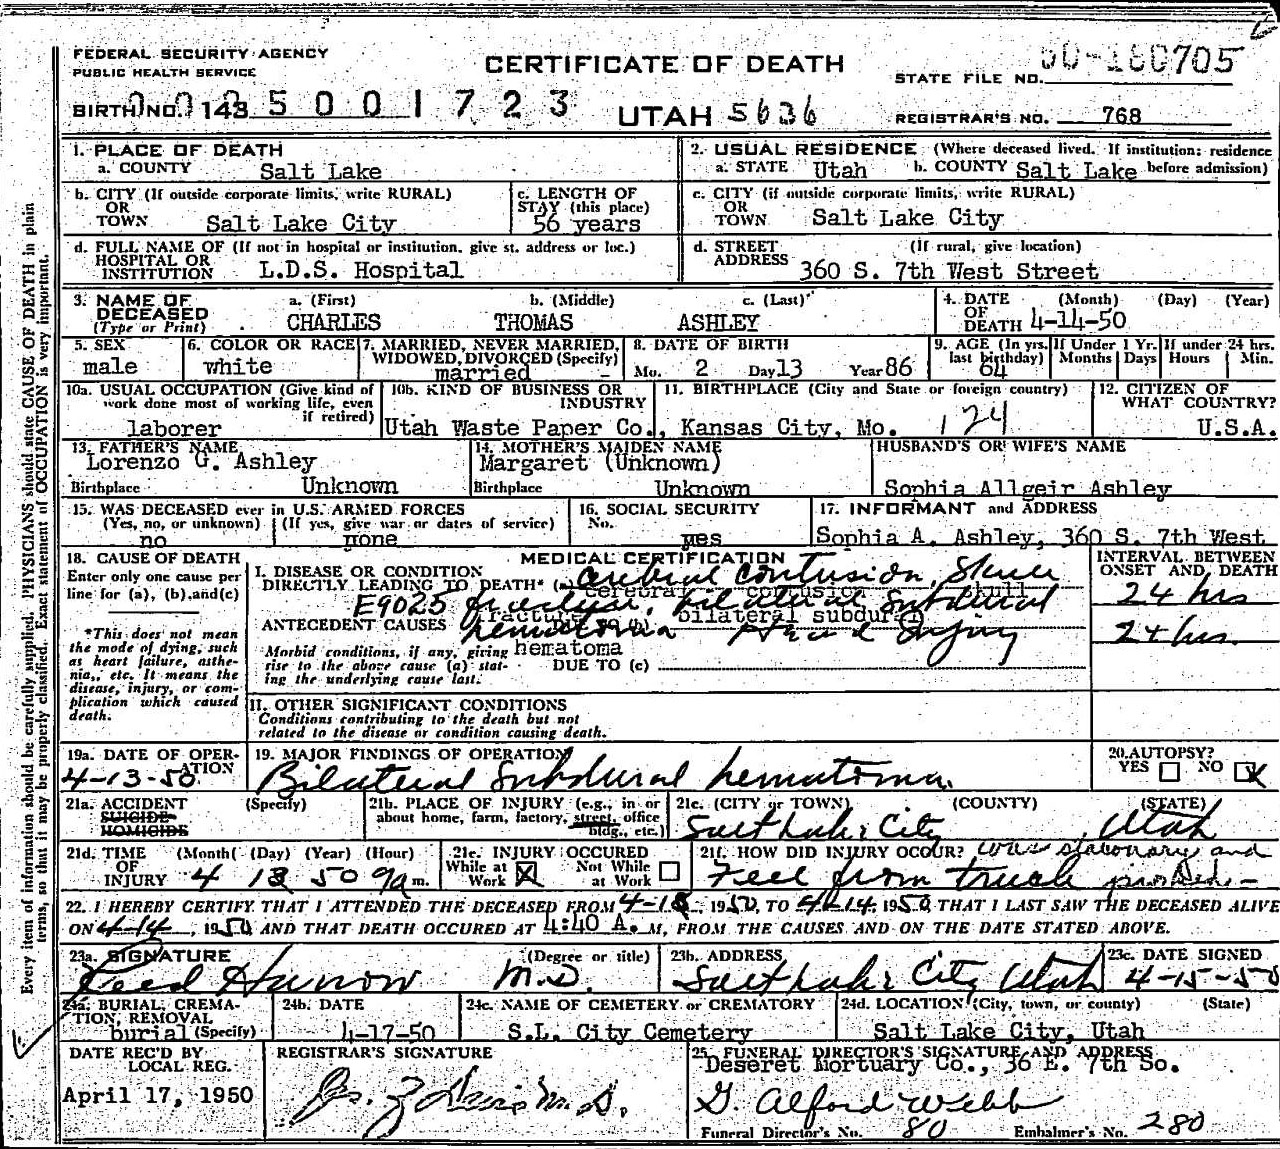 FEDERAL SECURITY AGENCY
PUBLIC HEALTH SERVICE
CERTIFICATE OF DEATH
STATE FILE NO. 705
BIRTH NO. 143 5 0 0 1 7 2 3
UTAH 5636
REGISTRAR'S NO. 768
Every item of information should be carefully supplied. PHYSICIANS should state CAUSE OF DEATH in plain
terms, so that it may be properly classified. Exact statement of OCCUPATION is very important.
1. PLACE OF DEATH
a. COUNTY Salt Lake
2. USUAL RESIDENCE (Where deceased lived. If institution: residence
a. STATE Utah b. COUNTY Salt Lake before admission)
b. CITY (If outside corporate limits, write RURAL)
OR
TOWN Salt Lake City
c. LENGTH OF
STAY (this place)
56 years
c. CITY (if outside corporate limits, write RURAL)
OR
TOWN Salt Lake City
d. FULL NAME OF (If not in hospital or institution, give st. address or loc.)
HOSPITAL OR
INSTITUTION L.D.S. Hospital
d. STREET (If rural, give location)
ADDRESS 360 S. 7th West Street
3. NAME OF DECEASED
(Type or Print)
a. (First) b. (Middle) c. (Last)
CHARLES THOMAS ASHLEY
4. DATE (Month) (Day) (Year)
OF
DEATH 4-14-50
5. SEX
male
6. COLOR OR RACE
white
7. MARRIED, NEVER MARRIED,
WIDOWED, DIVORCED (Specify)
married
8. DATE OF BIRTH
Mo. 2 Day 13 Year 86
9. AGE (In yrs. last birthday)
64
If Under 1 Yr. Months Days
If under 24 hrs. Hours Min.
10a. USUAL OCCUPATION (Give kind of
work done most of working life, even
if retired)
laborer
10b. KIND OF BUSINESS OR
INDUSTRY
Utah Waste Paper Co.,
11. BIRTHPLACE (City and State or foreign country)
Kansas City, Mo. 124
12. CITIZEN OF
WHAT COUNTRY?
U.S.A.
13. FATHER'S NAME
Lorenzo G. Ashley
Birthplace Unknown
14. MOTHER'S MAIDEN NAME
Margaret (Unknown)
Birthplace Unknown
HUSBAND'S OR WIFE'S NAME
Sophia Allgeir Ashley
15. WAS DECEASED ever in U.S. ARMED FORCES
(Yes, no, or unknown) (If yes, give war or dates of service)
no none
16. SOCIAL SECURITY
No.
yes
17. INFORMANT and ADDRESS
Sophia A. Ashley, 360 S. 7th West
18. CAUSE OF DEATH
Enter only one cause per
line for (a), (b), and (c)
*This does not mean
the mode of dying, such
as heart failure, asthe-
nia, etc. It means the
disease, injury, or com-
plication which caused
death.
MEDICAL CERTIFICATION
I. DISEASE OR CONDITION
DIRECTLY LEADING TO DEATH* (a) Cerebral contusion, Skull
cerebral contusion skull
E9025 fracture, bilateral subdural
fracture bilateral subdural
ANTECEDENT CAUSES hematoma Head Injury
Morbid conditions, if any, giving hematoma
rise to the above cause (a) stat- DUE TO (c)
ing the underlying cause last.
INTERVAL BETWEEN
ONSET AND DEATH
24 hrs
24 hrs.
II. OTHER SIGNIFICANT CONDITIONS
Conditions contributing to the death but not
related to the disease or condition causing death.
19a. DATE OF OPER-
ATION
4-13-50
19. MAJOR FINDINGS OF OPERATION
Bilateral subdural hematoma.
20. AUTOPSY?
YES NO X
21a. ACCIDENT (Specify)
SUICIDE
HOMICIDE
21b. PLACE OF INJURY (e.g., in or
about home, farm, factory, street, office
bldg., etc.)
21c. (CITY or TOWN) (COUNTY) (STATE)
Salt Lake City, Utah
21d. TIME (Month) (Day) (Year) (Hour)
OF
INJURY 4 13 50 9 a m.
21e. INJURY OCCURED
While at Work X Not While at Work
21f. HOW DID INJURY OCCUR? was stationary and
Fell from truck parked.
22. I HEREBY CERTIFY THAT I ATTENDED THE DECEASED FROM 4-13, 1950, TO 4-14, 1950, THAT I LAST SAW THE DECEASED ALIVE
ON 4-14, 1950 AND THAT DEATH OCCURED AT 4:40 A. M, FROM THE CAUSES AND ON THE DATE STATED ABOVE.
23a. SIGNATURE (Degree or title)
Reed Harrow M.D.
23b. ADDRESS
Salt Lake City Utah
23c. DATE SIGNED
4-15-50
24a. BURIAL, CREMA-
TION, REMOVAL
burial (Specify)
24b. DATE
4-17-50
24c. NAME OF CEMETERY OR CREMATORY
S.L. City Cemetery
24d. LOCATION (City, town, or county) (State)
Salt Lake City, Utah
DATE REC'D BY
LOCAL REG.
April 17, 1950
REGISTRAR'S SIGNATURE
M.D.
25. FUNERAL DIRECTOR'S SIGNATURE AND ADDRESS
Deseret Mortuary Co., 36 E. 7th So.
G. Alford Webb
Funeral Director's No. 80 Embalmer's No. 280